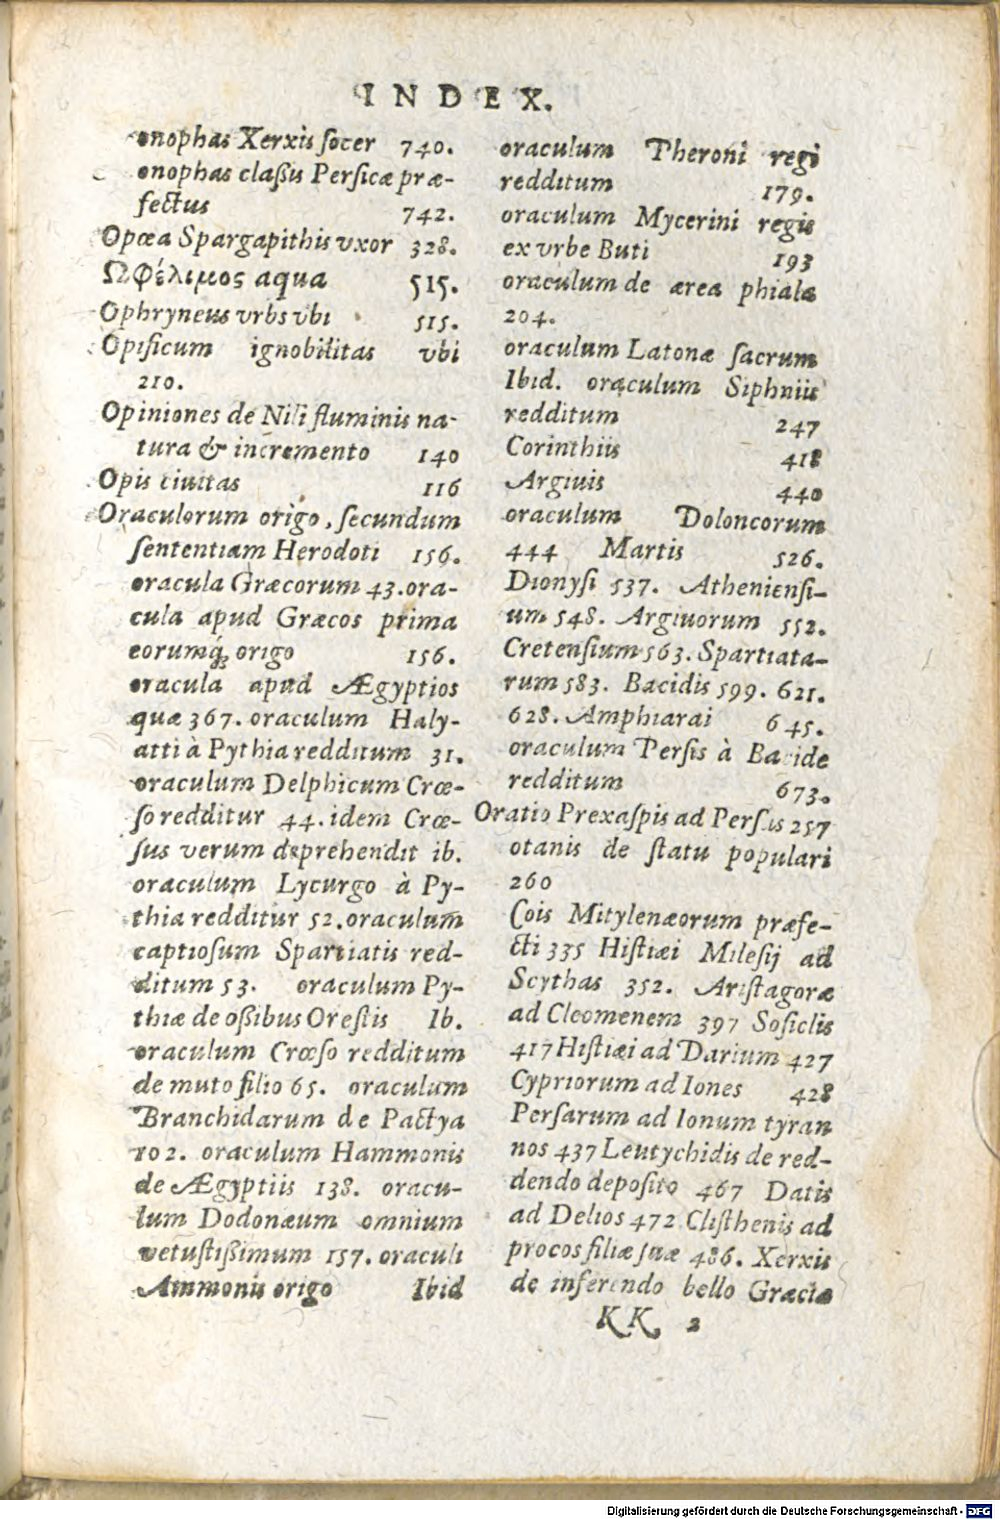 INDEX.
onophas Xerxis ſocer 740.
onophas claßis Perſicæ præ-
fectus 742.
Opœa Spargapithis vxor 328.
Ωφέλιμος aqua 515.
Ophryneus vrbs vbi 515.
Opificum ignobilitas vbi
210.
Opiniones de Nili fluminis na-
tura & incremento 140
Opis ciuitas 116
Oraculorum origo, ſecundum
ſententiam Herodoti 156.
oracula Græcorum 43. ora-
cula apud Græcos prima
eorumq; origo 156.
oracula apud Ægyptios
quæ 367. oraculum Haly-
atti à Pythia redditum 31.
oraculum Delphicum Crœ-
ſo redditur 44. idem Crœ-
ſus verum deprehendit ib.
oraculum Lycurgo à Py-
thia redditur 52. oraculum
captioſum Spartiatis red-
ditum 53. oraculum Py-
thiæ de oßibus Oreſtis Ib.
oraculum Crœſo redditum
de muto filio 65. oraculum
Branchidarum de Pactya
102. oraculum Hammonis
de Ægyptiis 138. oracu-
lum Dodonæum omnium
vetuſtißimum 157. oraculi
Ammonis origo Ibid
oraculum Theroni regi
redditum 179.
oraculum Mycerini regis
ex vrbe Buti 193
oraculum de ærea phiala
204.
oraculum Latonæ ſacrum
Ibid. oraculum Siphniis
redditum 247
Corinthiis 418
Argiuis 440
oraculum Doloncorum
444 Martis 526.
Dionyſi 537. Athenienſi-
um 548. Argiuorum 552.
Cretenſium 563. Spartiata-
rum 583. Bacidis 599. 621.
628. Amphiarai 645.
oraculum Perſis à Bacide
redditum 673.
Oratio Prexaſpis ad Perſas 257
otanis de ſtatu populari
260
Cois Mitylenæorum præfe-
cti 335 Hiſtiæi Mileſij ad
Scythas 352. Ariſtagoræ
ad Cleomenem 397 Soſiclis
417 Hiſtiæi ad Darium 427
Cypriorum ad Iones 428
Perſarum ad Ionum tyran
nos 437 Leutychidis de red-
dendo depoſito 467 Datis
ad Delios 472 Cliſthenis ad
procos filiæ ſuæ 486. Xerxis
de inferendo bello Græciæ
KK 2
Digitalisierung gefördert durch die Deutsche Forschungsgemeinschaft - DFG